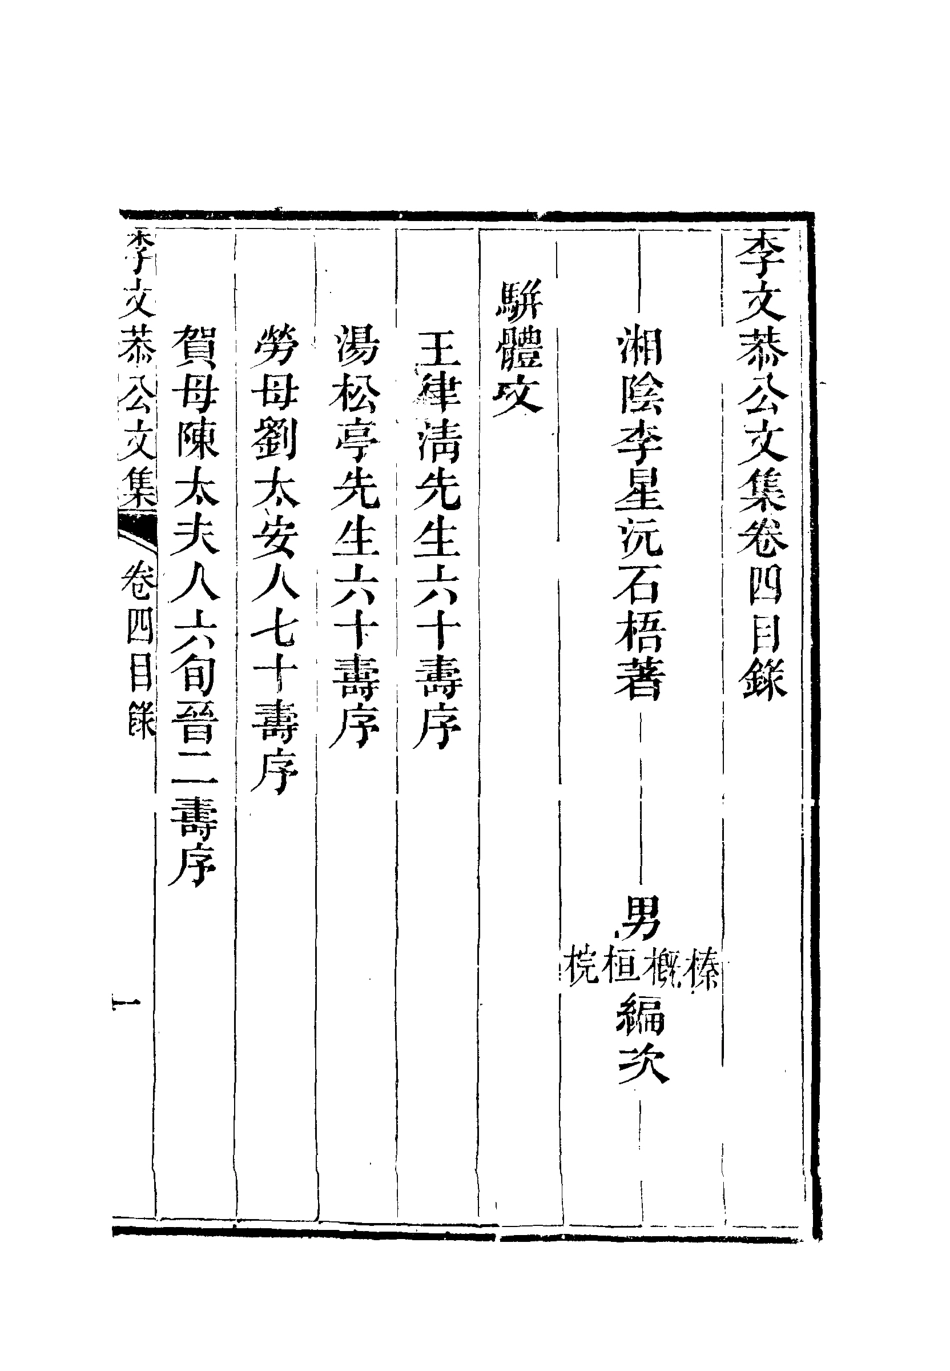 李文恭公文集卷四目錄
湘陰李星沅石梧著 男榛概桓梡編次
駢體文
王律清先生六十壽序
湯松亭先生六十壽序
勞母劉太安人七十壽序
賀母陳太夫人六旬晉二壽序
李文恭公文集 卷四目錄 一